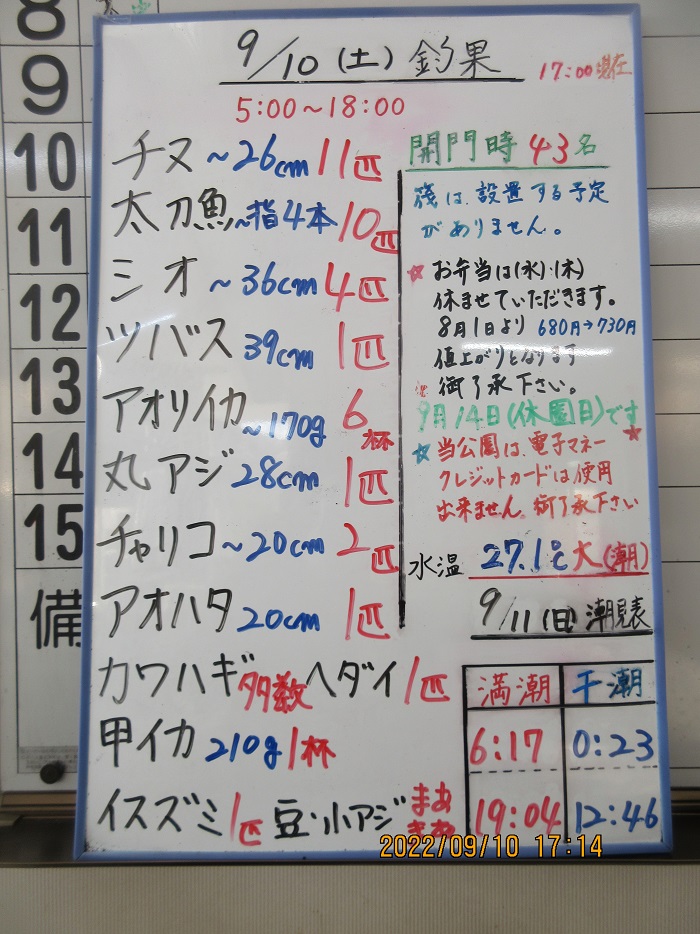 8
9
10
11
12
13
14
15
備
9/10(土)釣果
17:00現在
5:00～18:00
チヌ ～26cm 11匹
太刀魚 ～指4本 10匹
シオ ～36cm 4匹
ツバス 39cm 1匹
アオリイカ ～170g 6杯
丸アジ 28cm 1匹
チャリコ ～20cm 2匹
アオハタ 20cm 1匹
カワハギ 多数 ヘダイ 1匹
甲イカ 210g 1杯
イスズミ 1匹 豆・小アジ まあまあ
開門時 43名
筏は、設置する予定
がありません。
☆お弁当は(水)・(木)
休ませていただきます。
8月1日より 680円→730円
値上がりとなります
御了承下さい。
9月14日(休園日)です
☆当公園は、電子マネー☆
クレジットカードは使用
出来ません。御了承下さい
水温 27.1℃ 大(潮)
9/11(日)潮見表
満潮 干潮
6:17 0:23
19:04 12:46
2022/09/10 17:14